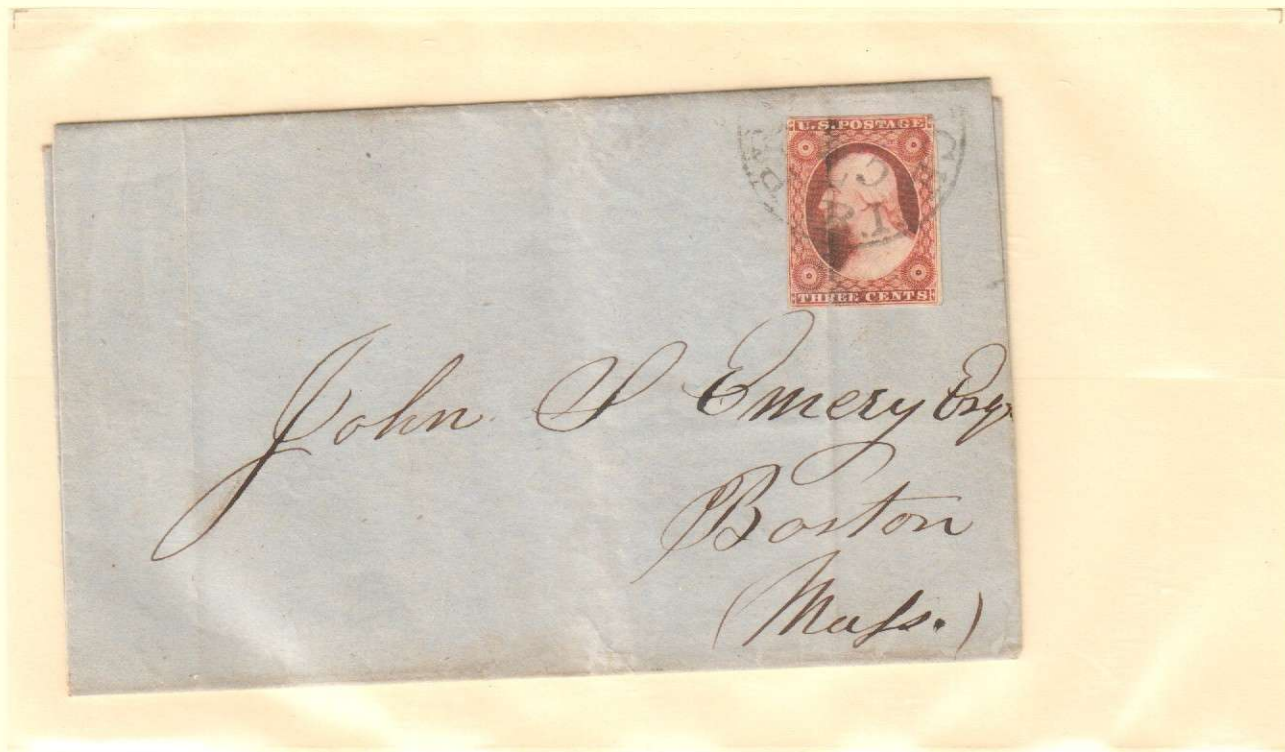 U.S. POSTAGE
R.I.
THREE CENTS
John S Emery Esqr
Boston
(Mass.)